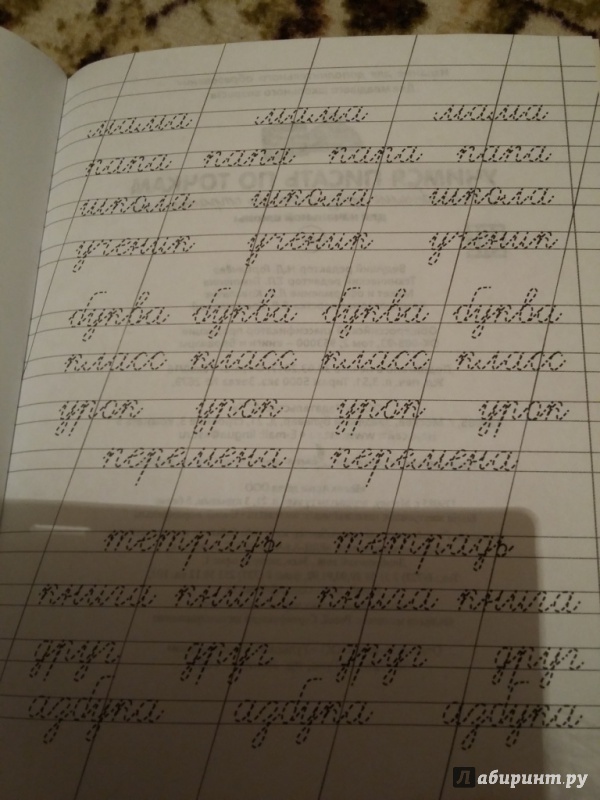 мама мама мама
папа папа папа папа
школа школа школа
ученик ученик ученик
буква буква буква буква
класс класс класс класс
урок урок урок урок
перемена перемена
тетрадь тетрадь
книга книга книга книга
друг друг друг друг
азбука азбука азбука
УЧИМСЯ ПИСАТЬ ПО ТОЧКАМ
Лабиринт.ру